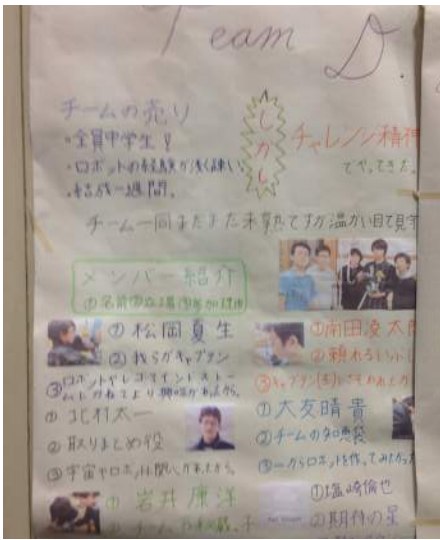 Team D.
チームの売り
・全員中学生!
・ロボットの経験が浅く疎い
・結成一週間。
しかし
チャレンジ精神
でやってきた。
チーム一同まだまだ未熟ですが温かい目で見守
メンバー紹介
①名前②立場③参加理由
①松岡夏生
②我らがキャプテン
③ロボットやレゴマインドストー
ムにかねてより興味があったから。
①北村太一
②取りまとめ役
③宇宙やロボットに関心があったから。
①岩井康洋
②チームの
①南田凌太朗
②頼れる
③キャプテン(①)にさそわれたか
①大友晴貴
②チームの知恵袋
③一からロボットを作ってみたかっ
①塩崎倫也
②期待の星